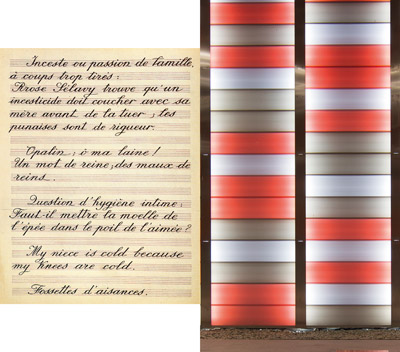 Inceste ou passion de famille,
à coups trop tirés :
Rrose Sélavy trouve qu'un
incesticide doit coucher avec sa
mère avant de la tuer ; les
punaises sont de rigueur.
Opalin, ô ma laine !
Un mot de reine ; des maux de
reins.
Question d'hygiène intime :
Faut-il mettre la moelle de
l'épée dans le poil de l'aimée ?
My niece is cold because
my knees are cold.
Fossettes d'aisances.